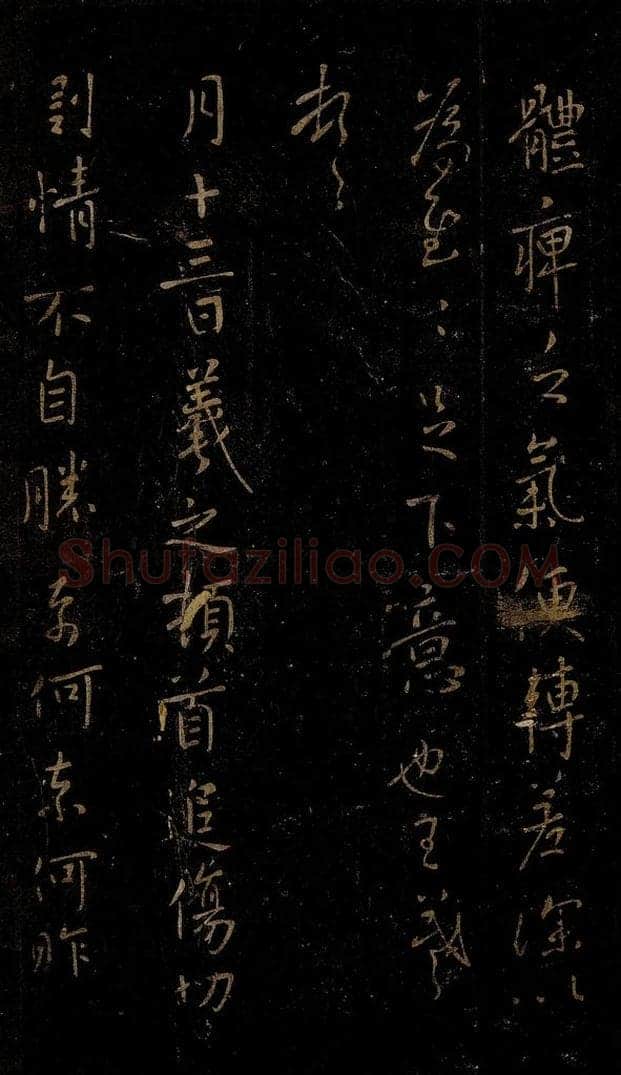 體痺之氣便轉差深以
為足下意也王羲
月十三日羲之頓首追傷切
割情不自勝奈何奈何昨
Shufaziliao.COM